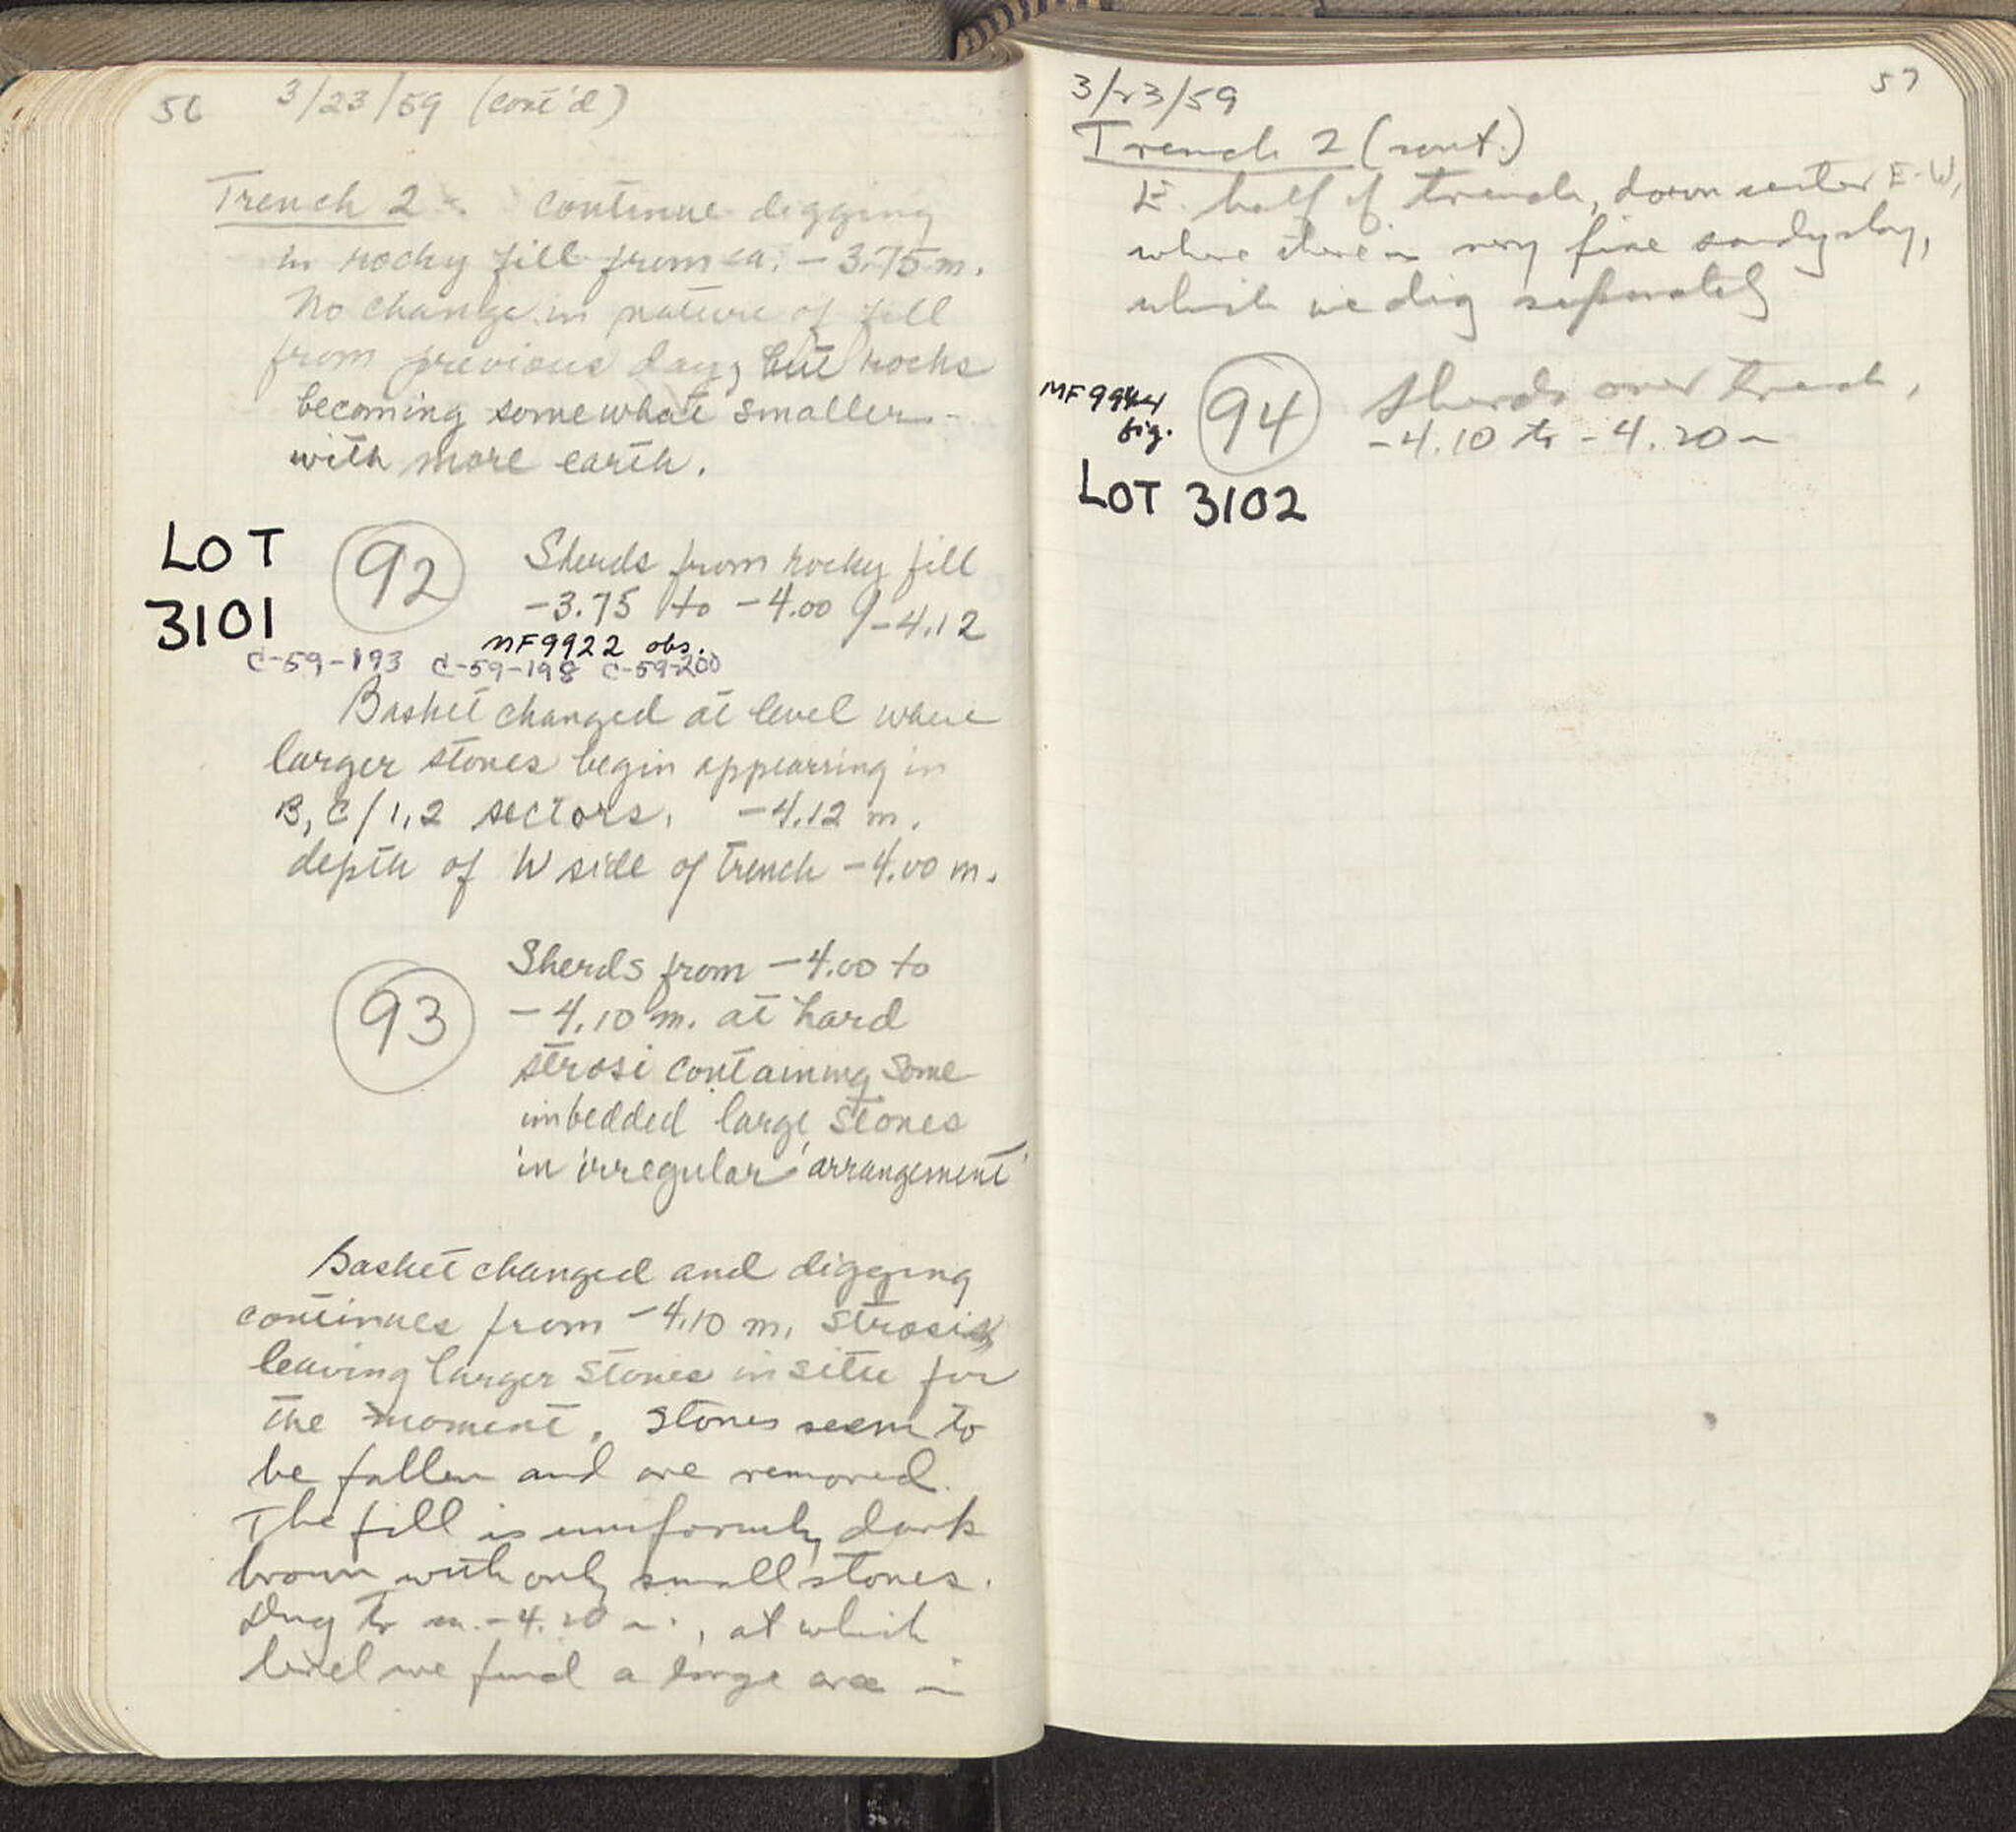 56 3/23/59 (cont'd)
Trench 2 - continue digging
in rocky fill from ca. -3.75 m.
No change in nature of fill
from previous day, but rocks
becoming somewhat smaller -
with more earth.
LOT
3101
92 Sherds from rocky fill
-3.75 to -4.00 / -4.12
MF9922 obs.
C-59-193 C-59-198 C-59-200
Basket changed at level where
larger stones begin appearring in
B, C/1,2 sectors. -4.12 m.
depth of W side of trench -4.00 m.
93 Sherds from -4.00 to
-4.10 m. at hard
strosi containing some
imbedded large stones
in irregular arrangement
Basket changed and digging
continues from -4.10 m. strosis
leaving larger stones in situ for
the moment. Stones seem to
be fallen and are removed.
The fill is uniformly dark
brown with only small stones.
Dug to ca. -4.20 m., at which
level we find a large area in
3/23/59 57
Trench 2 (cont.)
E. half of trench, down center E-W,
where there is very fine sandy clay,
which we dig separately
94 Sherds over trench,
-4.10 to -4.20 m
fig.
LOT 3102